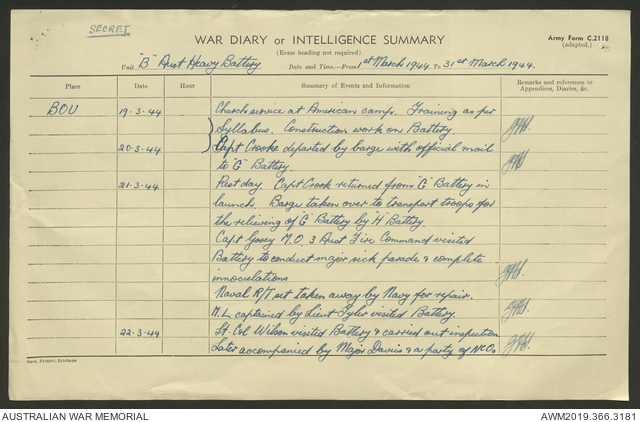 SECRET
WAR DIARY or INTELLIGENCE SUMMARY
Army Form C.2118
(adapted.)
(Erase heading not required)
Unit "B" Aust Heavy Battery Date and Time.—From 1st March 1944 To 31st March 1944.
Place Date Hour Summary of Events and Information Remarks and references to
Appendices, Diaries, &c.
BOU 19-3-44 Church service at American camp. Training as per
Syllabus. Construction work on Battery.
20-3-44 Capt Crooke departed by barge with official mail
to "G" Battery.
21-3-44 Rest day. Capt Crook returned from "G" Battery in
launch. Barge taken over to transport troops for
the relieving of "G" Battery by "H" Battery.
Capt Gooey M.O. 3 Aust Fire Command visited
Battery to conduct major sick parade & complete
innoculations
Naval R/T set taken away by Navy for repair.
M.L captained by Lieut Tyler visited Battery.
22-3-44 Lt. Col Wilson visited Battery & carried out inspection
Later accompanied by Major Davis & a party of NCOs
Printer, Brisbane
AUSTRALIAN WAR MEMORIAL AWM2019.366.3181